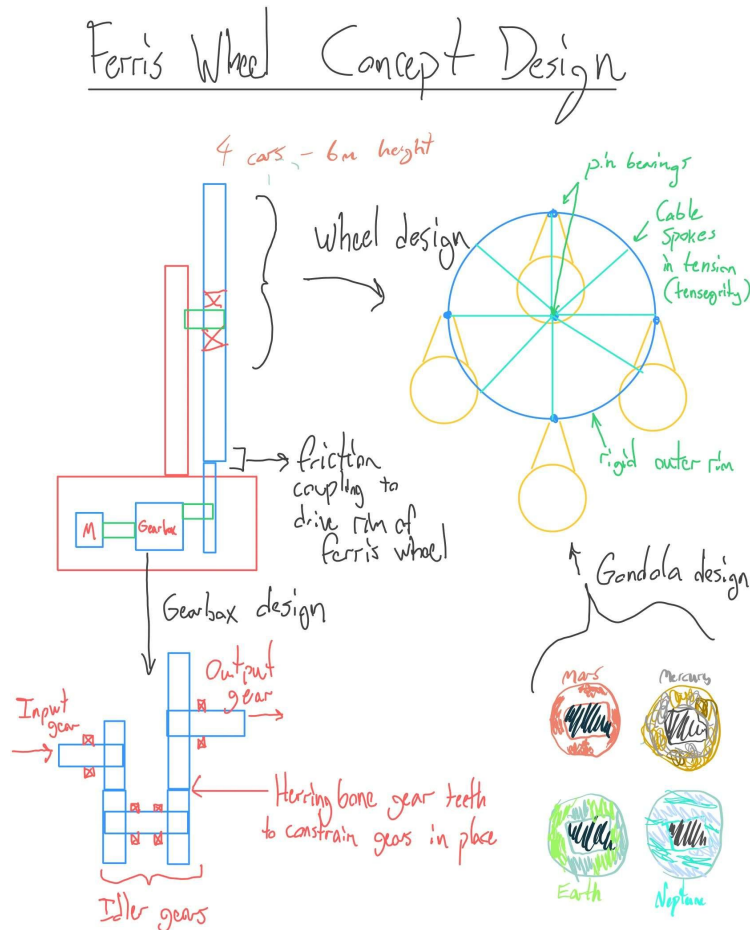 Ferris Wheel Concept Design
4 cars - 6m height
Wheel design
pin bearings
Cable
spokes
in tension
(tensegrity)
rigid outer rim
friction
coupling to
drive rim of
ferris wheel
M
Gearbox
Gearbox design
Gondola design
Input
gear
Output
gear
Herring bone gear teeth
to constrain gears in place
Idler gears
Mars
Mercury
Earth
Neptune